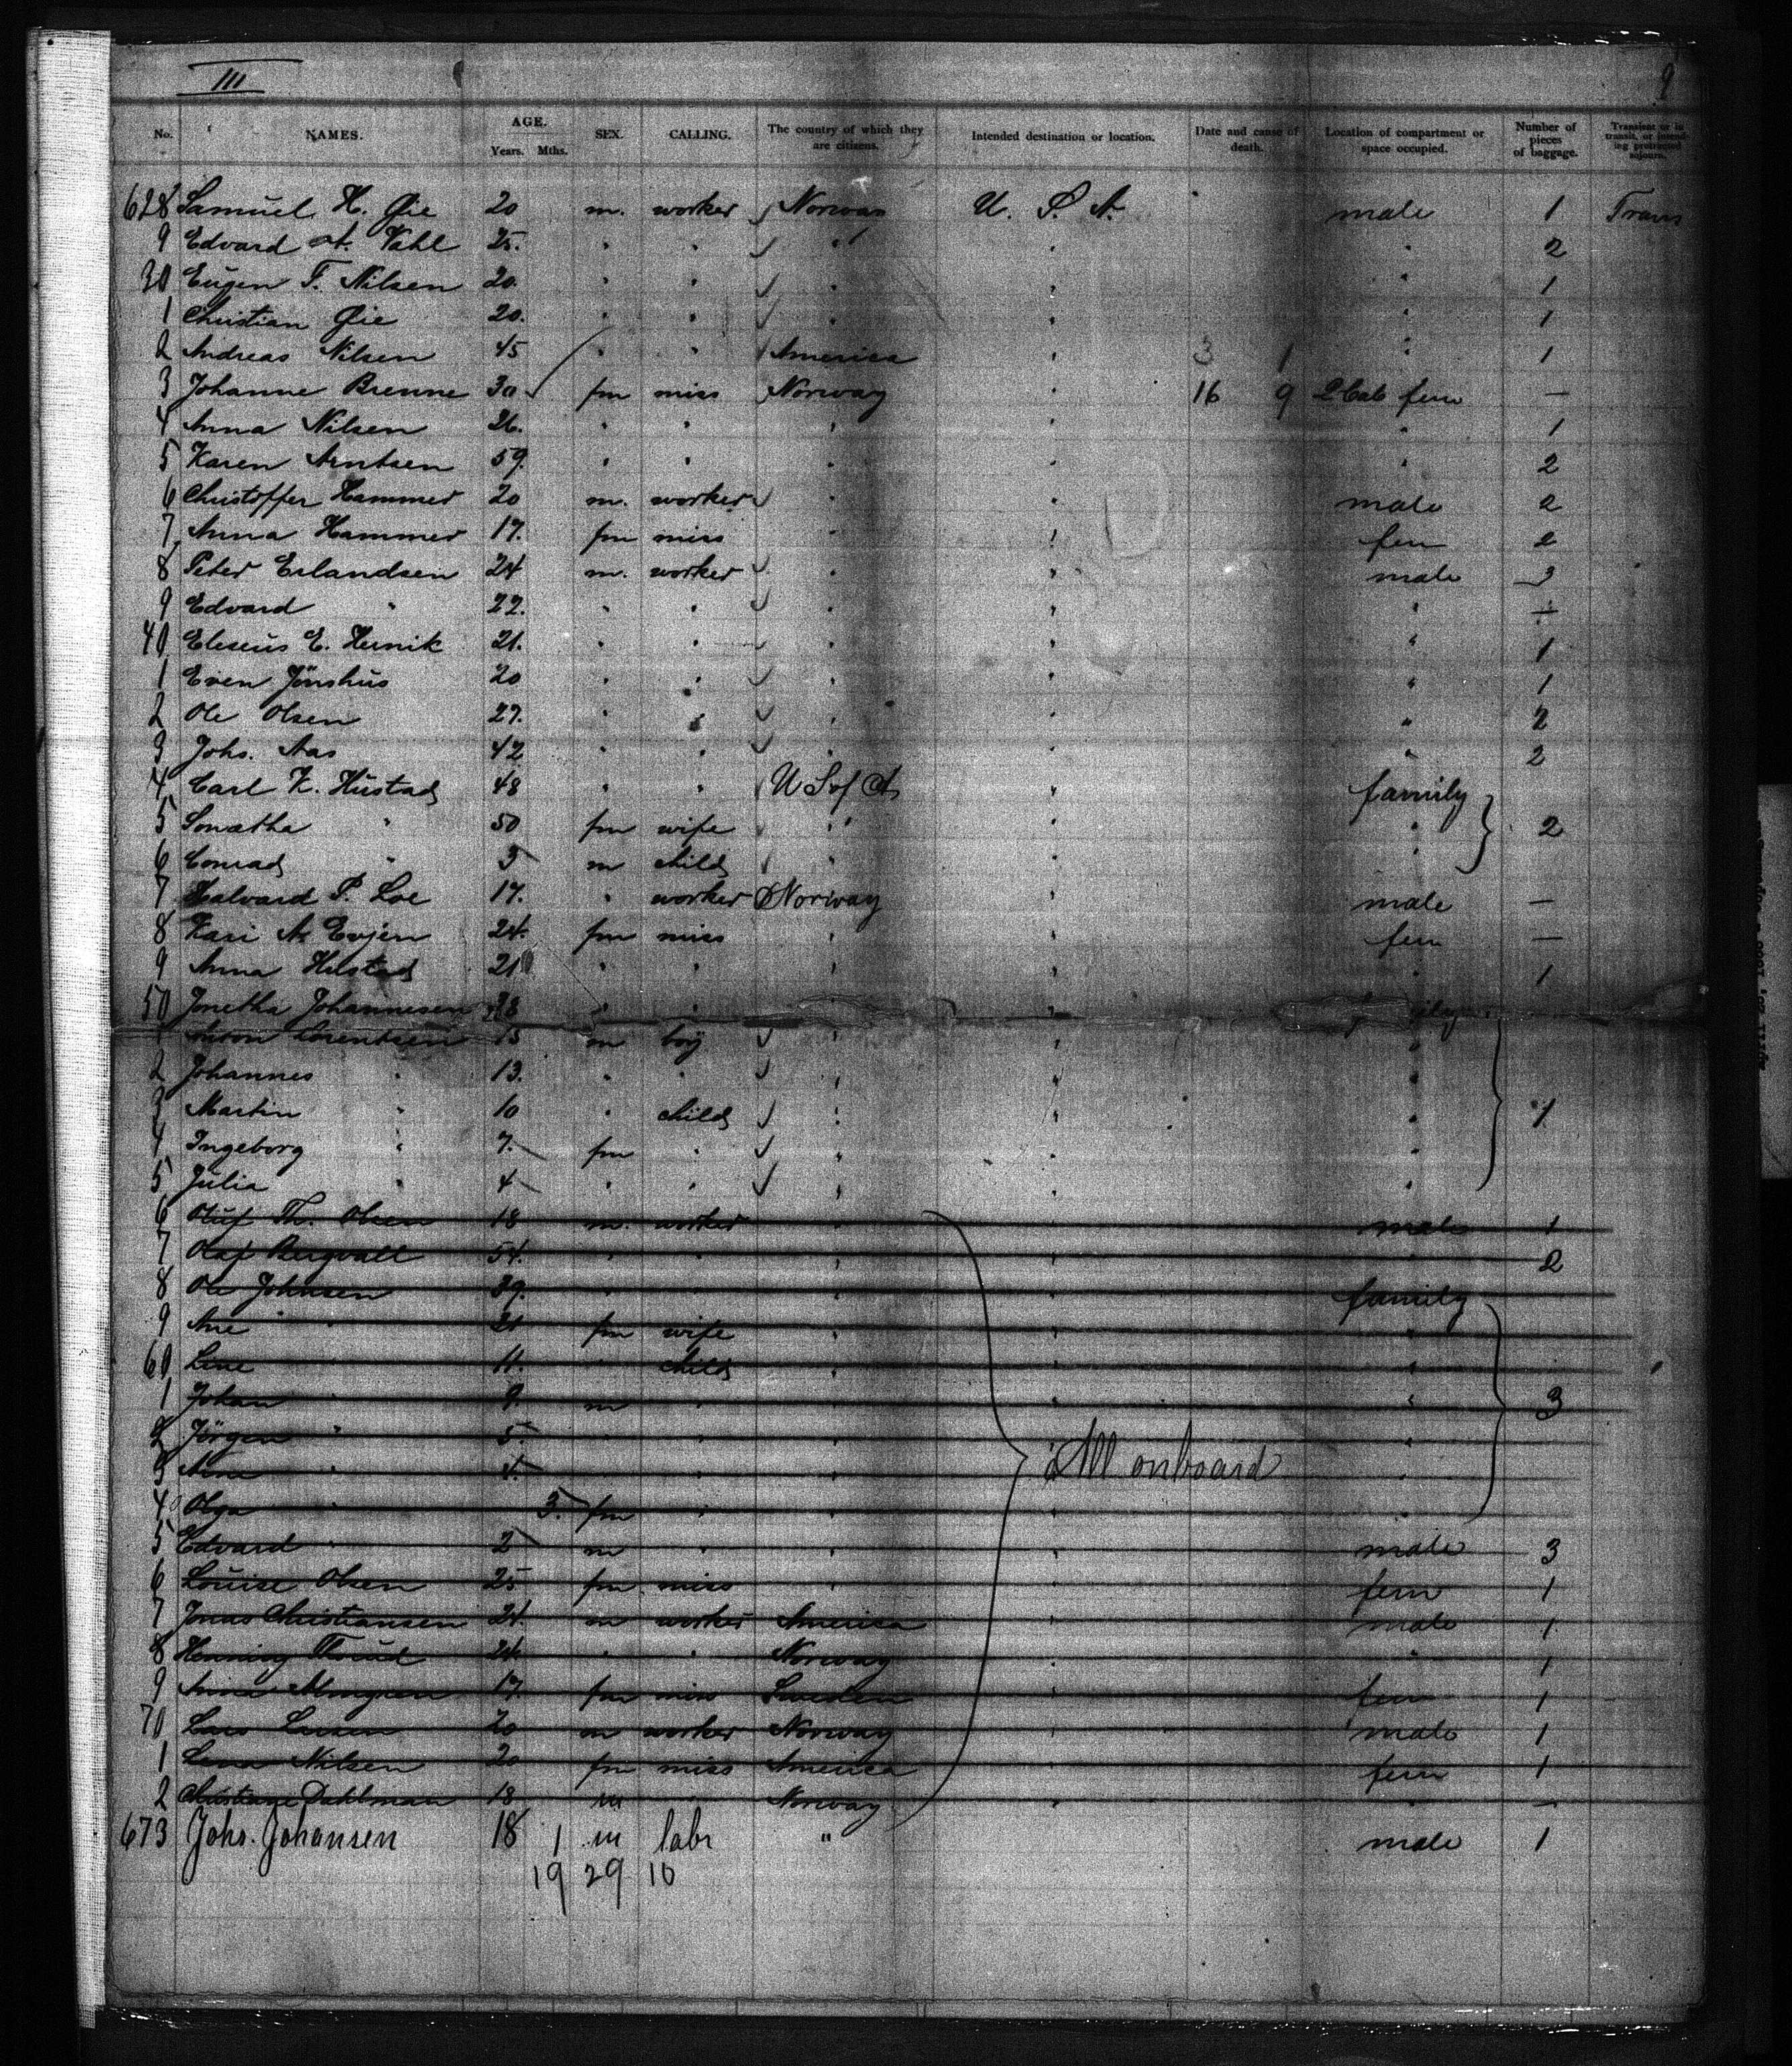 III 9
No. NAMES. AGE. Years. Mths. SEX. CALLING. The country of which they are citizens. Intended destination or location. Date and cause of death. Location of compartment or space occupied. Number of pieces of baggage. Transient or in transit, or intending protracted sojourn.
628 Samuel H. Øie 20 m. worker Norway U. S. A. male 1 Trans
9 Edvard A. Vahl 25. " " " " 2
30 Eugen F. Nilsen 20. " " " " " 1
1 Christian Øie 20. " " " " " 1
2 Andreas Nilsen 45 " " America " 3 1 " 1
3 Johanne Brenne 30 fm miss Norway " 16 9 2 Cab fem —
4 Anna Nilsen 26. " " " " " 1
5 Karen Arntsen 59. " " " " " 2
6 Christoffer Hammer 20 m. worker " " male 2
7 Anna Hammer 17. fm miss " " fem 2
8 Peter Erlandsen 24 m. worker " " male 3
9 Edvard " 22. " " " " " —
40 Eleseus E. Hernik 21. " " " " " 1
1 Even Jönshus 20 " " " " " 1
2 Ole Olsen 27. " " " " " 2
3 Johs. Aas 42 " " " " " 2
4 Carl K. Hustad 48 " " U S of A " family
5 " 50 fm wife " " " 2
6 Conrad " 5 m child " " "
7 Halvard P. Loe 17. " worker Norway male —
8 Kari A. Evjen 24. fm miss " " fem —
9 Anna Helstad 21 " " " " " 1
50 Jonetha Johannesen 38 " " " "
1 Lorentsen 15 m boy " " "
2 Johannes " 13. " " " " "
3 Martin " 10 " child " " " 1
4 Ingeborg " 7. fm " " " "
5 Julia " 4 " " " " "
6 Oluf Th. Olsen 18 m. worker " " male 1
7 Olaf Bergvall 54. " " " " " 2
8 Ole Johnsen 39. " " " " family
9 " fm wife " " "
60 Line " 11. " child " " "
1 Johan " 9. m " " " " 3
2 Jörgen " 5. " " " " "
3 " 4. " " " " All onboard "
4 Olga " 3. fm " " " "
5 Edvard " 2 m " " " male 3
6 Louise Olsen 25 fm miss " " fem 1
7 Christiansen 24. m worker America " male 1
8 Henning 24. " " Norway " " 1
9 17. fm miss Sweden " fem 1
70 Lars 20 m worker Norway " male 1
1 Lena Nilsen 20 fm miss America " fem 1
2 Dahlman 18 m " Norway " " —
673 Johs. Johansen 18 1 m labr " male 1
19 29 10